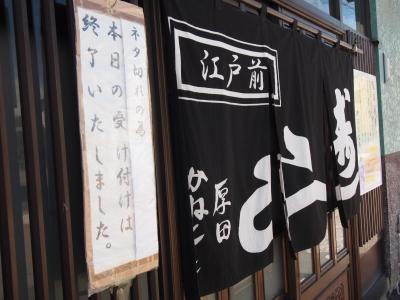 ネタ切れの為
本日の受け付けは
終了いたしました。
江戸前
寿
厚田